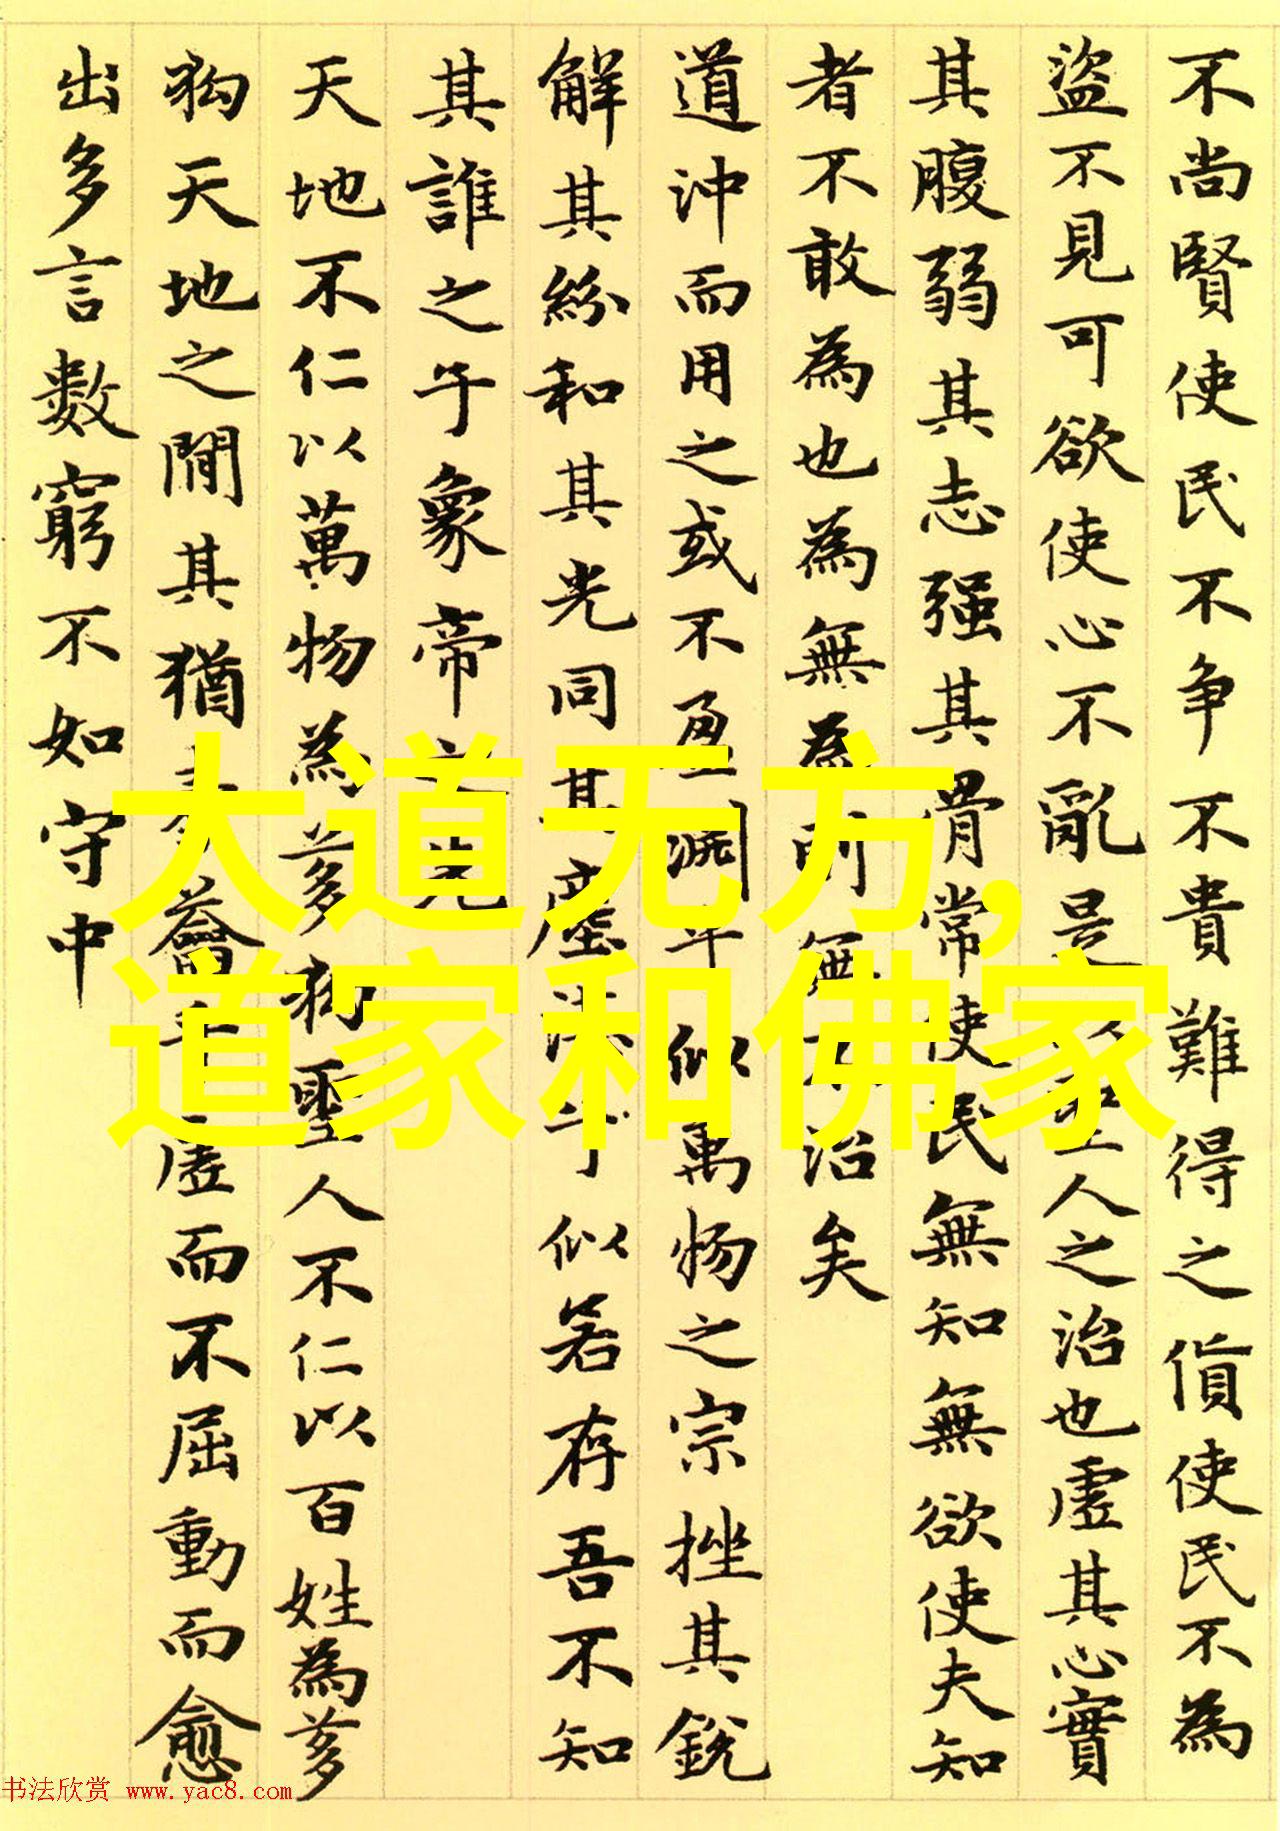 不尚賢使民不争不貴難得之貨使民不為
盜不見可欲使心不亂是以聖人之治也虛其心實
其腹弱其志强其骨常使民無知無欲使夫知
者不敢為也為無為則無不治矣
道沖而用之或不盈淵乎似萬物之宗挫其銳
解其紛和其光同其塵湛乎似若存吾不知
其誰之子象帝之先
天地不仁以萬物為芻狗聖人不仁以百姓為芻
狗天地之間其猶乎虛而不屈動而愈
出多言數窮不如守中
大道无方,
道家和佛家
书法欣赏 www.yac8.com